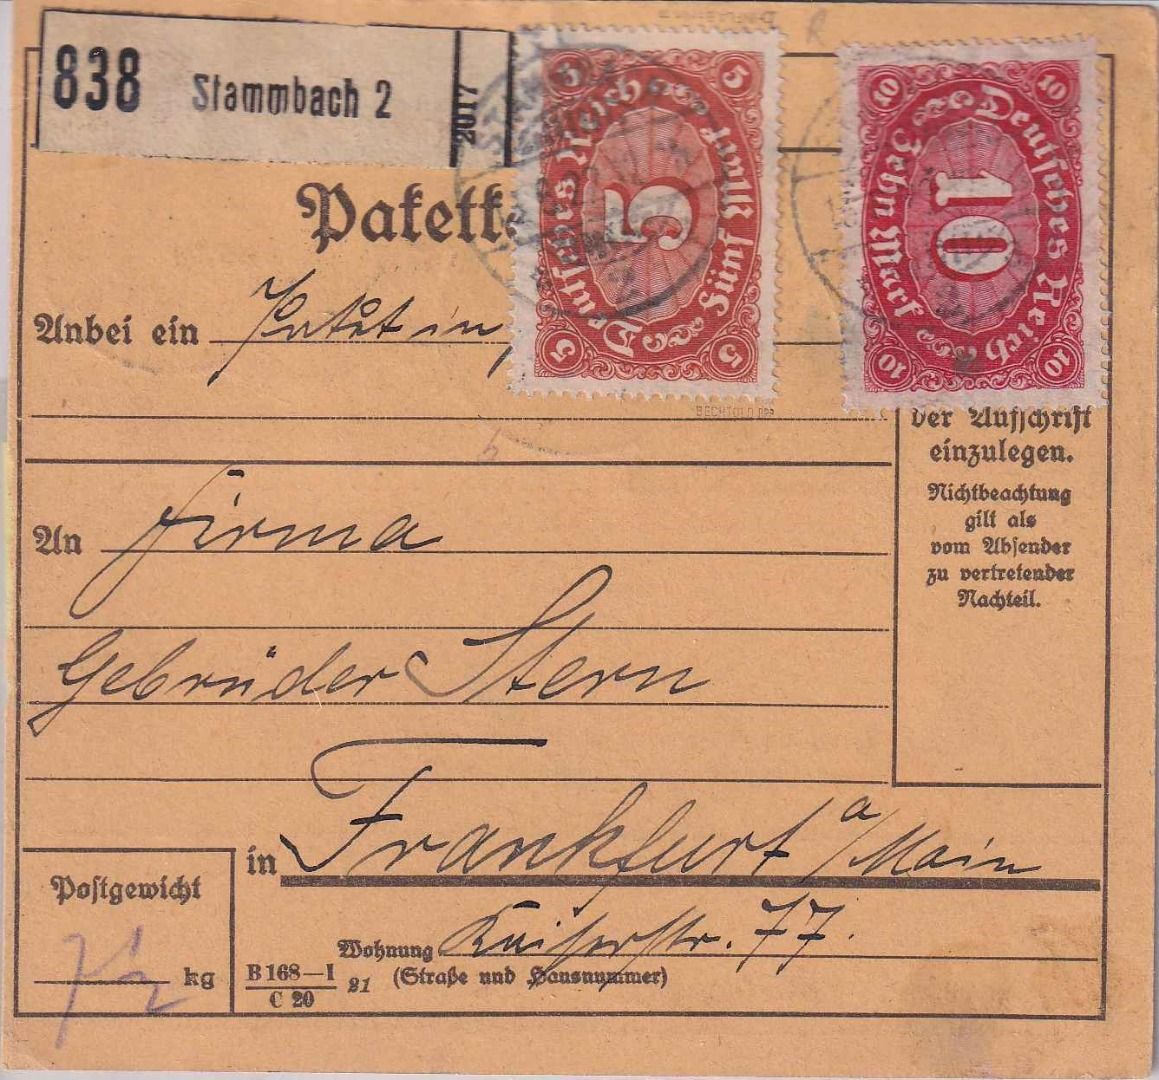 838 Stammbach 2
2017
Pakett
5 Deutsches Reich Fünf Mark 5
5 5
5
10 Deutsches Reich Zehn Mark 10
10 10
10
Anbei ein Paket in
BECHTOLD DPP
der Aufschrift
einzulegen.
Nichtbeachtung
gilt als
vom Absender
zu vertretender
Nachteil.
An Firma
Gebrüder Stern
in Frankfurt a/Main
Postgewicht
7 1/2 kg
Wohnung Kaiserstr. 77.
(Straße und Hausnummer)
B 168—I
C 20
21